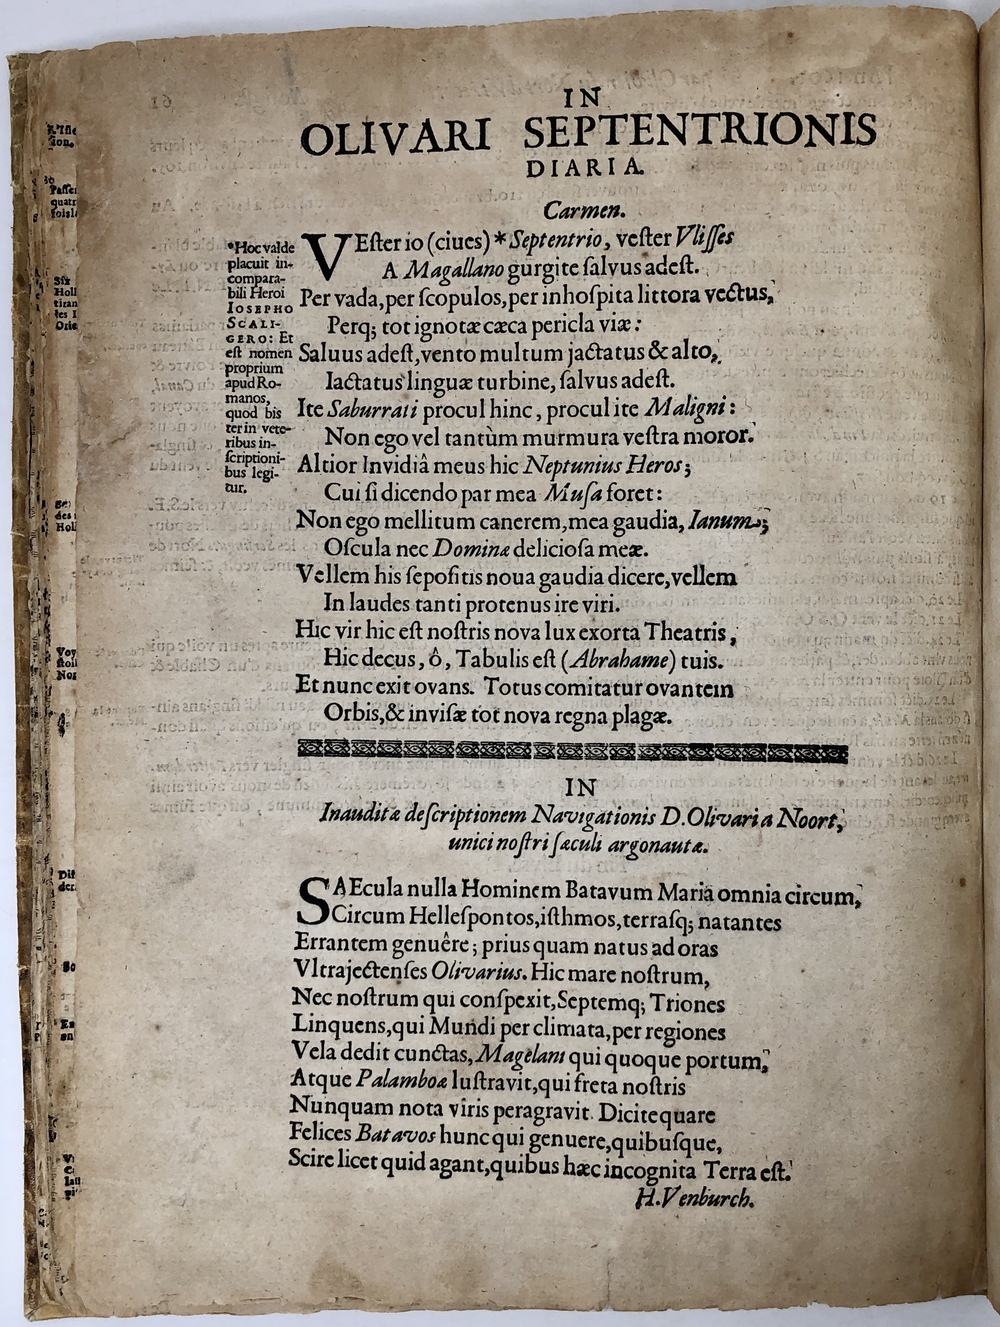 IN
OLIVARI SEPTENTRIONIS
DIARIA.
Carmen.
VEſter io (ciues) * Septentrio, veſter Vliſſes
A Magallano gurgite ſalvus adeſt.
Per vada, per ſcopulos, per inhoſpita littora vectus,
Perq; tot ignotæ cæca pericla viæ:
Saluus adeſt, vento multum jactatus & alto,
Iactatus linguæ turbine, ſalvus adeſt.
Ite Saburrati procul hinc, procul ite Maligni:
Non ego vel tantùm murmura veſtra moror.
Altior Invidiâ meus hic Neptunius Heros;
Cui ſi dicendo par mea Muſa foret:
Non ego mellitum canerem, mea gaudia, Ianum;
Oſcula nec Dominæ delicioſa meæ.
Vellem his ſepoſitis noua gaudia dicere, vellem
In laudes tanti protenus ire viri.
Hic vir hic eſt noſtris nova lux exorta Theatris,
Hic decus, ô, Tabulis eſt (Abrahame) tuis.
Et nunc exit ovans. Totus comitatur ovantem
Orbis, & inviſæ tot nova regna plagæ.
*Hoc valde
placuit in-
compara-
bili Heroi
IOSEPHO
SCALI-
GERO: Et
eſt nomen
proprium
apud Ro-
manos,
quod bis
ter in vete-
ribus in-
ſcriptioni-
bus legi-
tur.
IN
Inauditæ deſcriptionem Navigationis D. Olivari a Noort,
unici noſtri ſæculi argonautæ.
SAEcula nulla Hominem Batavum Maria omnia circum,
Circum Helleſpontos, iſthmos, terraſq; natantes
Errantem genuêre; prius quam natus ad oras
Vltrajectenſes Olivarius. Hic mare noſtrum,
Nec noſtrum qui conſpexit, Septemq; Triones
Linquens, qui Mundi per climata, per regiones
Vela dedit cunctas, Magelani qui quoque portum,
Atque Palamboæ luſtravit, qui freta noſtris
Nunquam nota viris peragravit. Dicite quare
Felices Batavos hunc qui genuere, quibuſque,
Scire licet quid agant, quibus hæc incognita Terra eſt.
H. Venburch.